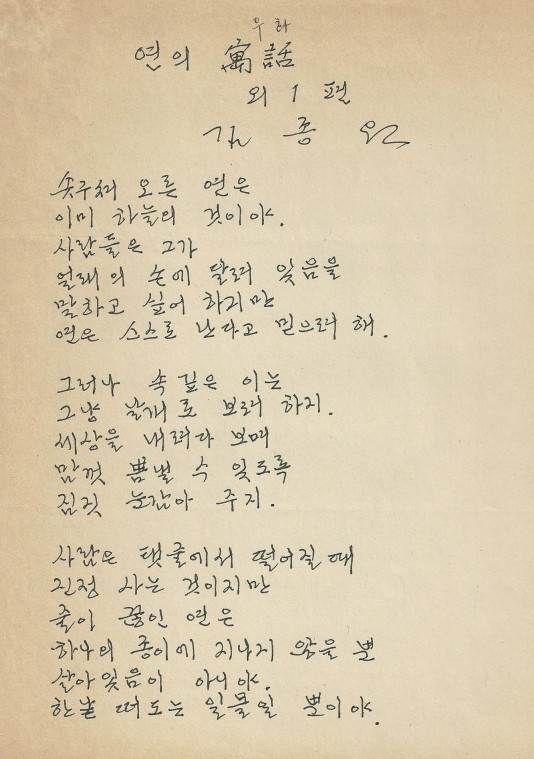 우화
연의 寓話
외 1 편
김 종
솟구쳐 오른 연은
이미 하늘의 것이야.
사람들은 그가
얼레의 손에 달려 있음을
말하고 싶어 하지만
연은 스스로 난다고 믿으려 해.
그러나 속 깊은 이는
그냥 날개로 보려 하지.
세상을 내려다 보며
맘껏 뽐낼 수 있도록
짐짓 눈감아 주지.
사람은 탯줄에서 떨어질 때
진정 사는 것이지만
줄이 끊인 연은
하나의 종이에 지나지 않을 뿐
살아있음이 아니야.
한낱 떠도는 일물일 뿐이야.